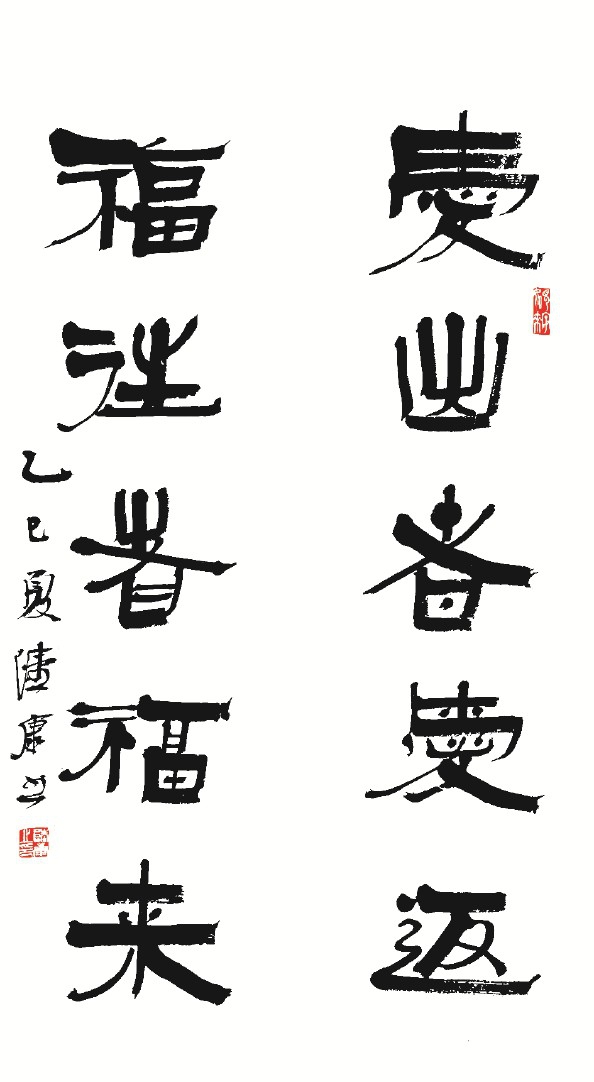 愛出者愛返
福往者福来
乙巳夏陸康书